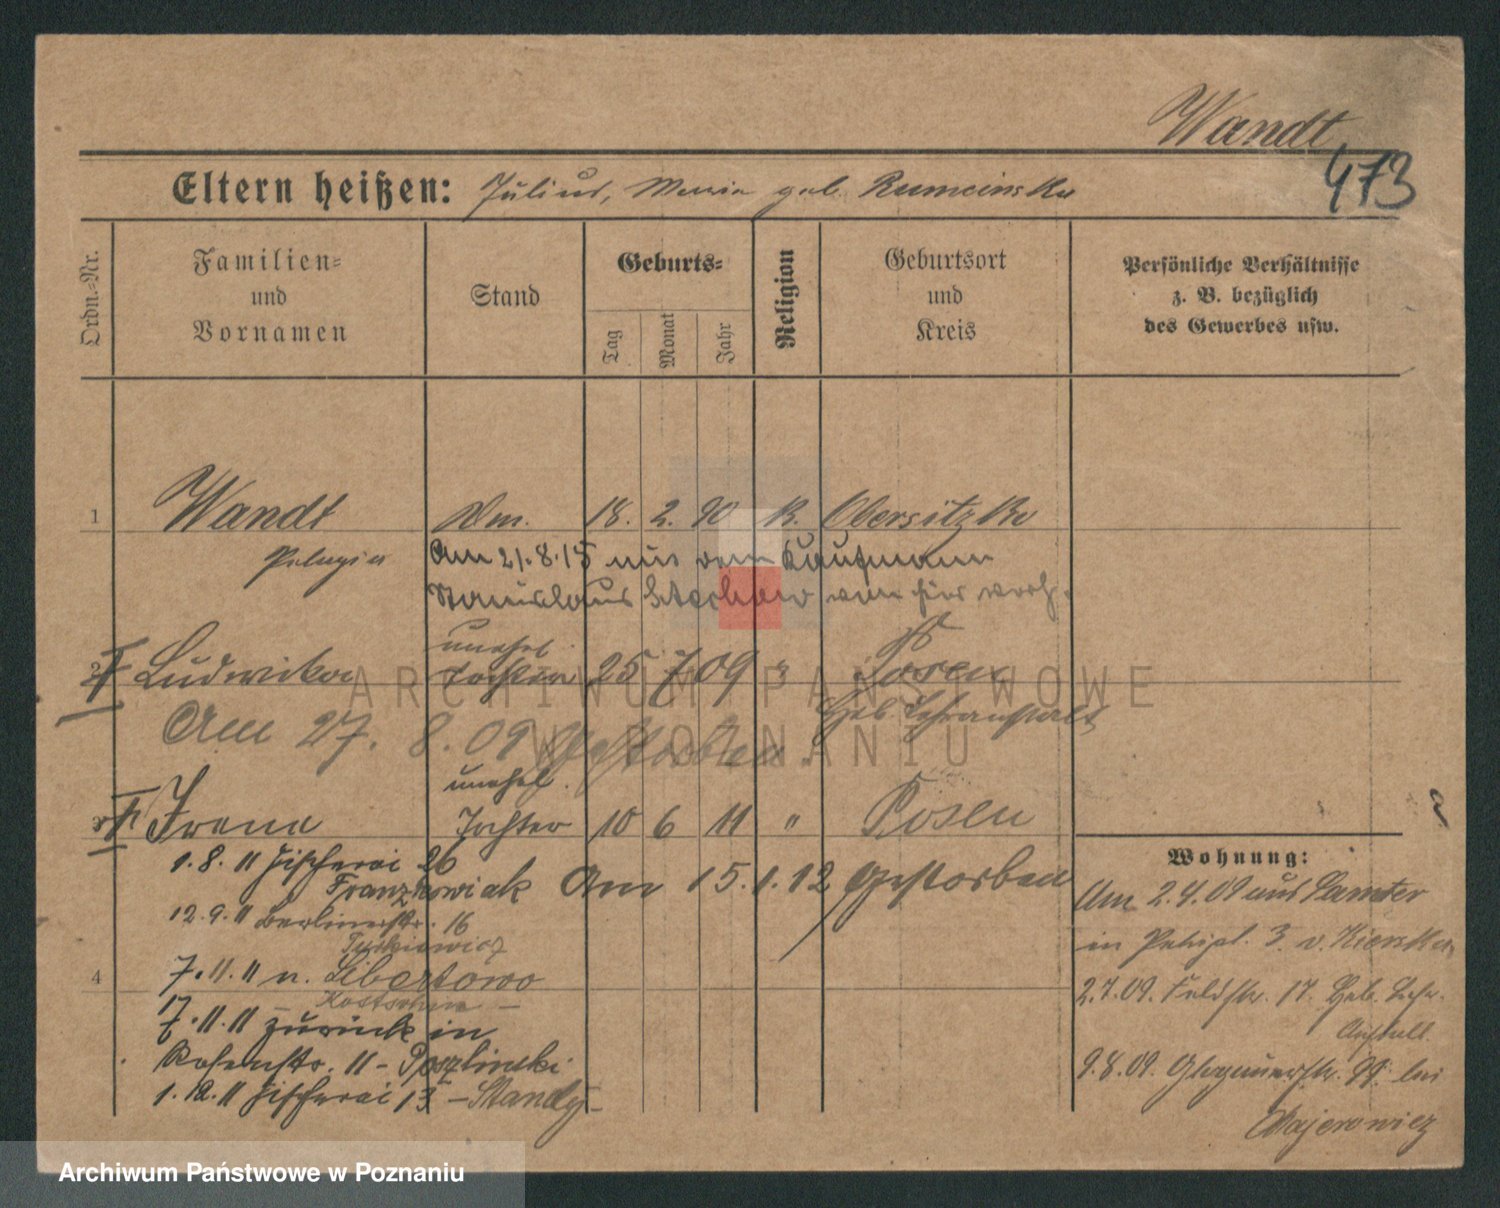 Wandt
473
Eltern heißen: Julius, Maria geb. Rumcinska
Ordn.-Nr.
Familien-
und
Vornamen
Stand
Geburts-
Tag
Monat
Jahr
Religion
Geburtsort
und
Kreis
Persönliche Verhältnisse
z. B. bezüglich
des Gewerbes usw.
1 Wandt Dm. 18. 2. 90 K. Obersitzko
Pelagia Am 21.8.15 mit dem Kaufmann
Stanislaus von hier verh.
unehel.
2 Ludwika Tochter 25 7 09 " Posen
Heb. Lehranstalt
Am 27. 8. 09 gestorben.
unehel.
3 Irena Tochter 10 6 11 " Posen
1.8.11 Fischerei 26
Franzkowiak Am 15.1.12 gestorben
12.9.11 Berlinerstr. 16
7.11.11 n. Libartowo
4
Kostschin
17.11.11 zurück in
Rosenstr. 11 - Poszlinski
1.12.11 Fischerei 13 - Standy -
Wohnung:
Am 2.4.09 aus Samter
in Petripl. 3 v. Kierska
2.7.09. Feldstr. 17. Heb. Lehr-
Anstalt.
9.8.09. Glogauerstr. 99 bei
Majerowicz
ARCHIWUM PAŃSTWOWE
W POZNANIU
Archiwum Państwowe w Poznaniu